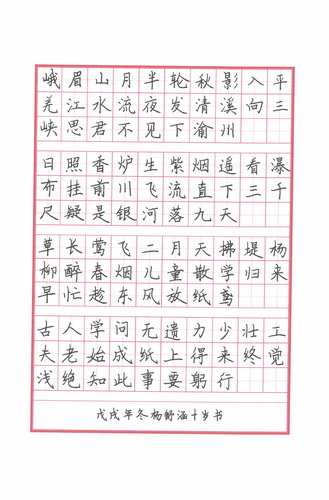 峨眉山月半轮秋影入平
羌江水流夜发清溪向三
峡思君不见下渝州
日照香炉生紫烟遥看瀑
布挂前川飞流直下三千
尺疑是银河落九天
草长莺飞二月天拂堤杨
柳醉春烟儿童散学归来
早忙趁东风放纸鸢
古人学问无遗力少壮工
夫老始成纸上得来终觉
浅绝知此事要躬行
戊戌年冬杨舒涵十岁书